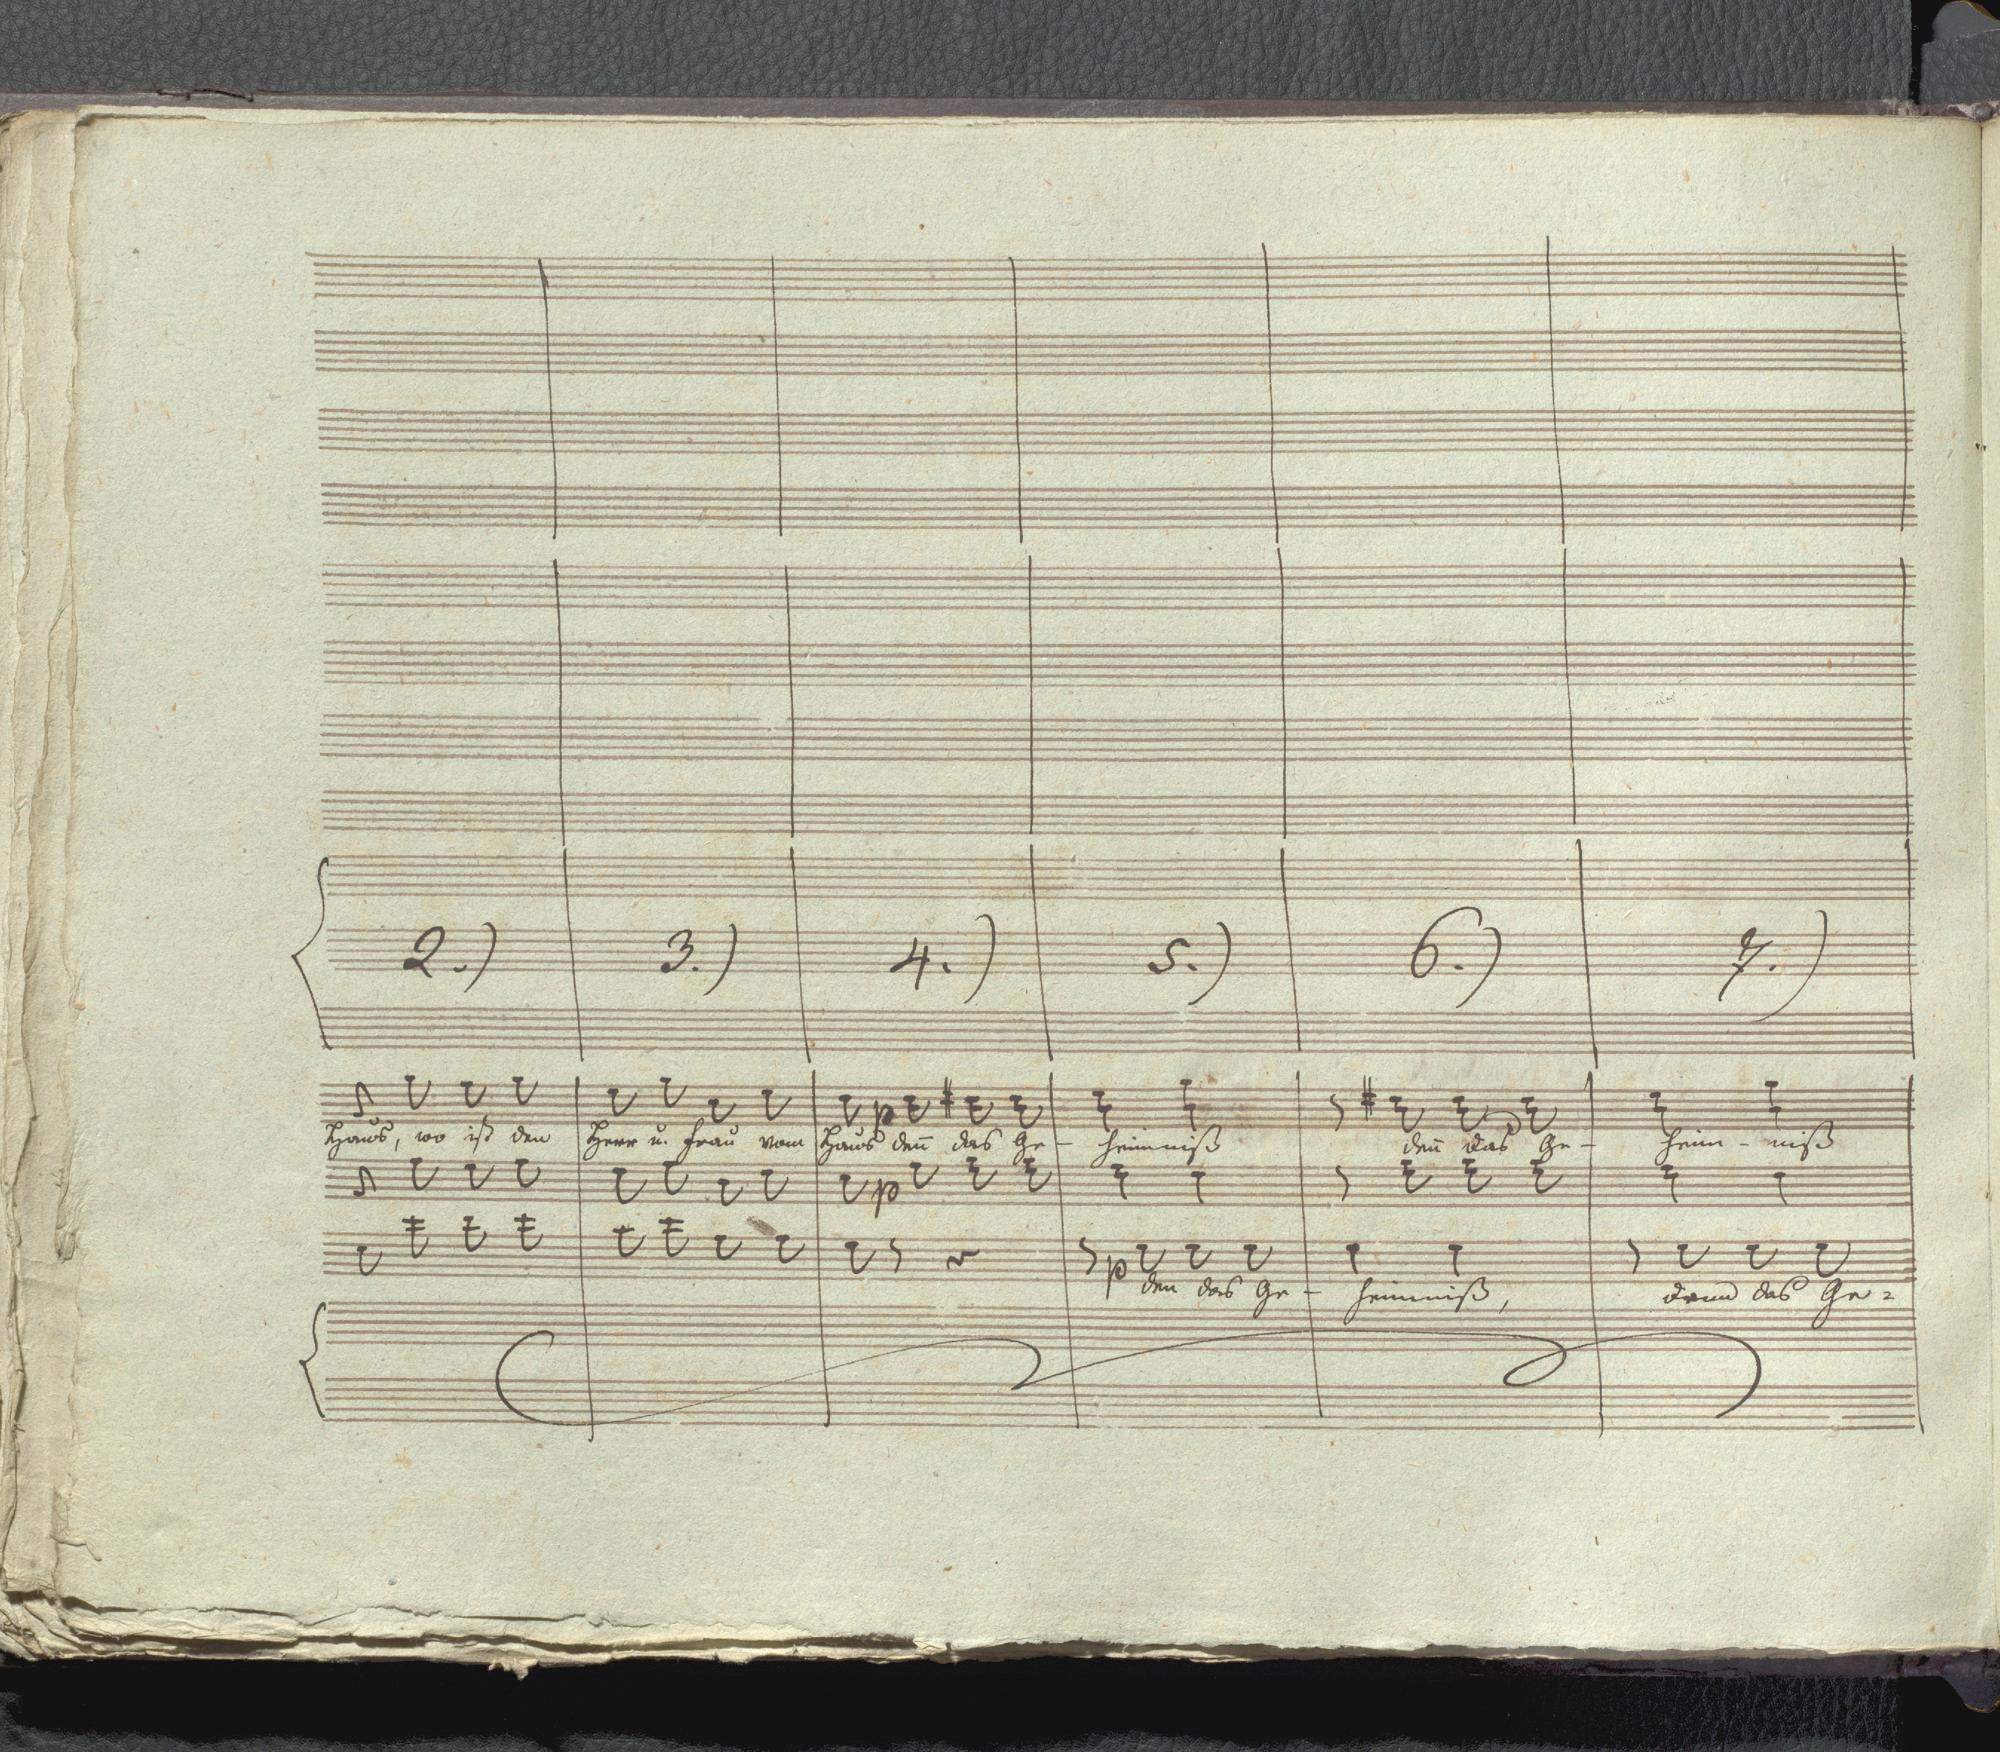 2.) 3.) 4.) 5.) 6.) 7.)
Haus, wo ist den Herr u. Frau vom Haus den̅ das Ge- heimniß den̅ das Ge- heim-niß
p
p
p
den das Ge- heimniß, denn das Ge=